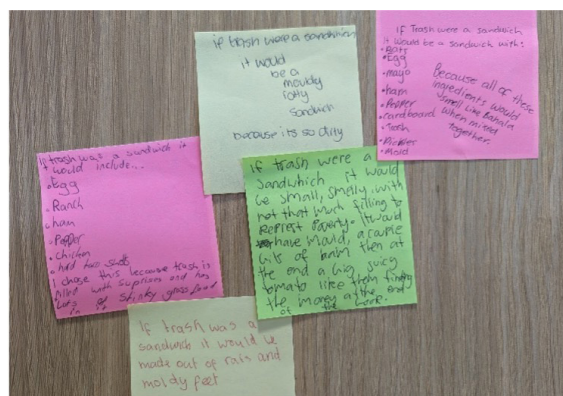 if trash were a sandwich
it would
be a
mouldy
rotty
sandwich
because its so dirty
IF Trash were a sandwich
it would be a sandwich with:
• Egg
• mayo
• ham
• Pepper
• cardboard
• Pickles
• Mold
Because all of these
ingredients would
smell like
when mixed
together.
If trash was a sandwich it
would include...
• Egg
• Ranch
• ham
• Pepper
• Chicken
• hot
I chose this because trash is
filled with suprises and has
lots of stinky gross food
in it
if trash were a
Sandwhich it would
be small, smelly, with
not that much filling to
Represt Poverty. It would
have mould, a couple
bits of ham then at
the end a big juicy
tomato like them
the money at the end
of the
If trash was a
sandwich it would be
made out of rats and
moldy feet